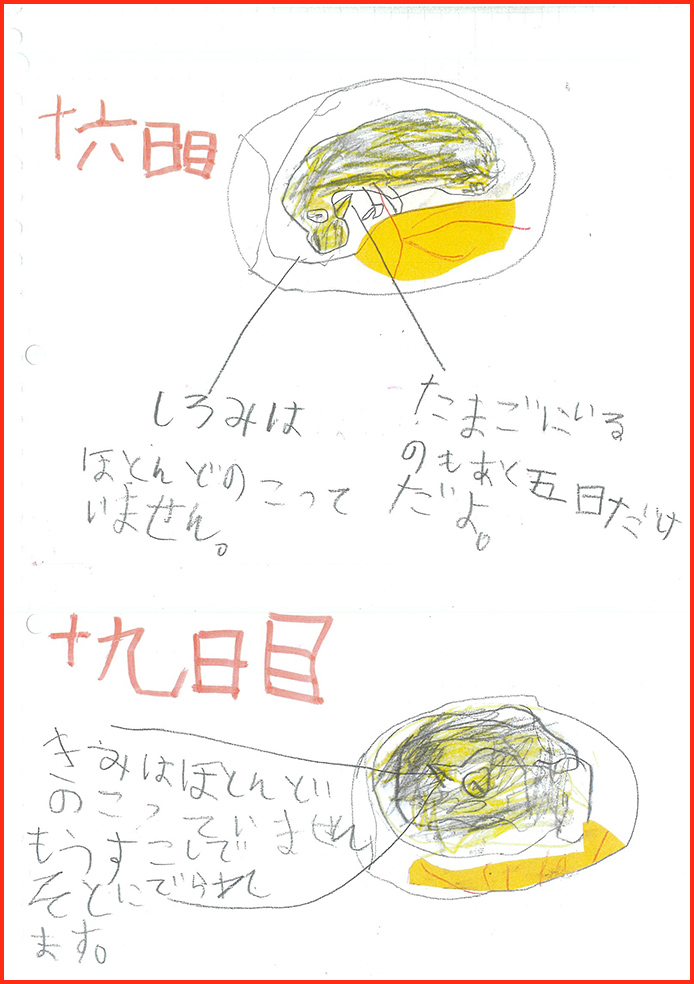 十六日目
しろみは
ほとんどのこって
いません。
たまごにいる
のもあと五日だけ
だよ。
十九日目
きみはほとんど
のこっていません
もうすこしで
そとにでられて
ます。